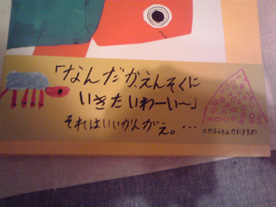 「なんだかえんそくに
いきたいわーい〜」
それはいいかんがえ。…